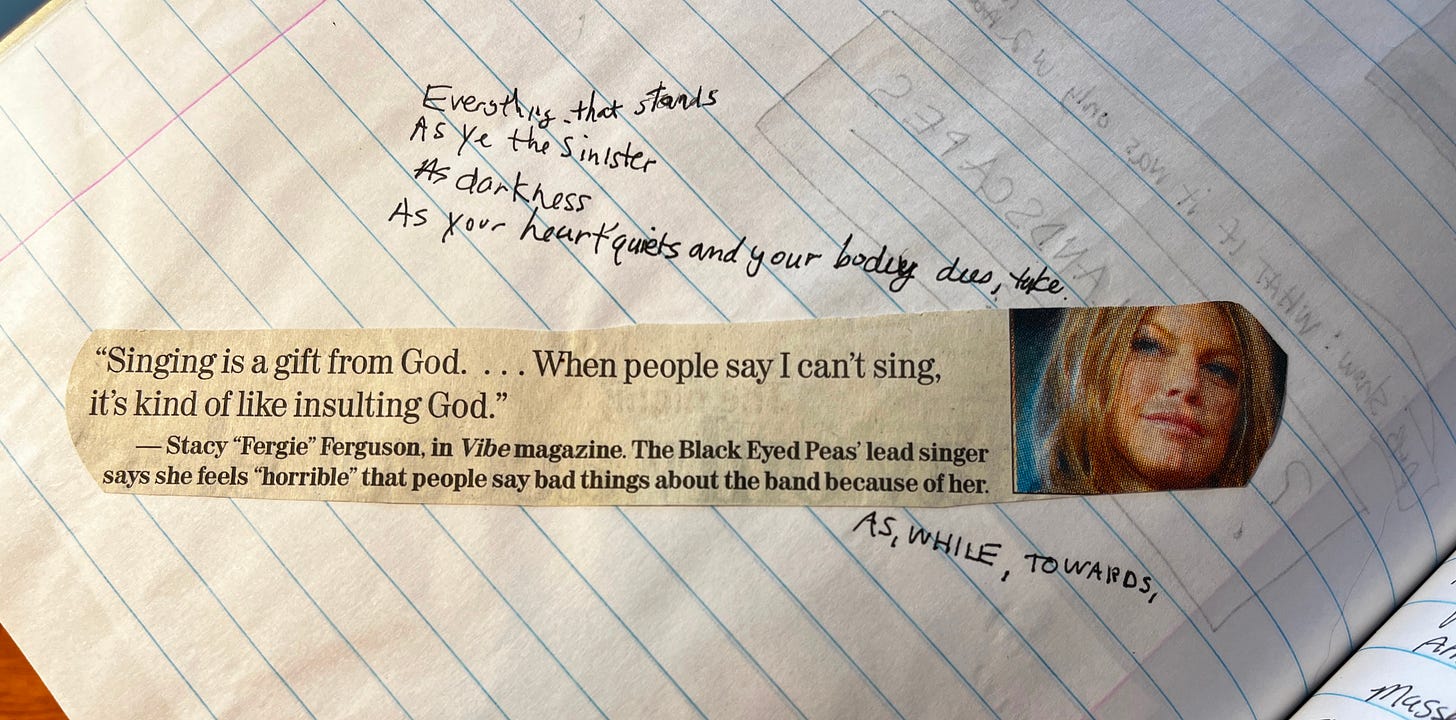 Everything that stands
As ye the sinister
As darkness
As your heart quiets and your body dies, take.
“Singing is a gift from God. . . . When people say I can’t sing,
it’s kind of like insulting God.”
— Stacy “Fergie” Ferguson, in Vibe magazine. The Black Eyed Peas’ lead singer
says she feels “horrible” that people say bad things about the band because of her.
AS, WHILE, TOWARDS,